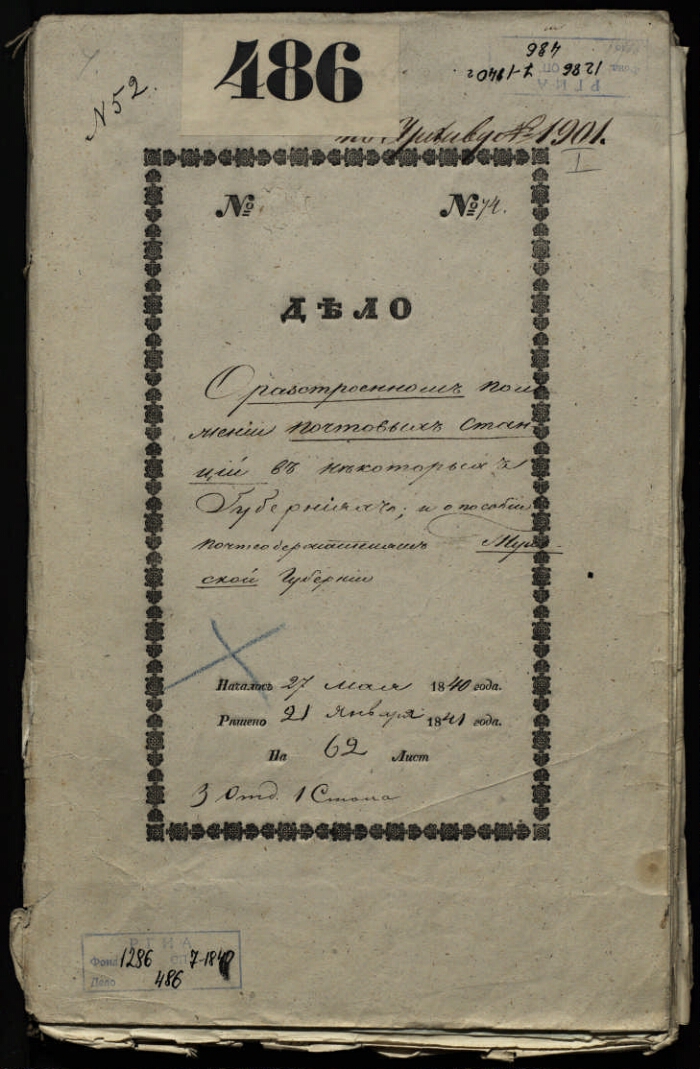 486
N 52.
1286 7-1840 г
486
по Архиву № 1901.
I
№
№ 74.
ДѢЛО
О разстроенномъ поло
женіи почтовыхъ стан
цій въ нѣкоторыхъ
Губерніяхъ; и о пособіи
почтосодержателямъ
ской Губерніи
Началось 27 мая 1840 года.
Рѣшено 21 января 1841 года.
На 62 Лист
3 Отд. 1 Стола
РГИА
Фонд 1286 ОП. 7-1840
Дело 486